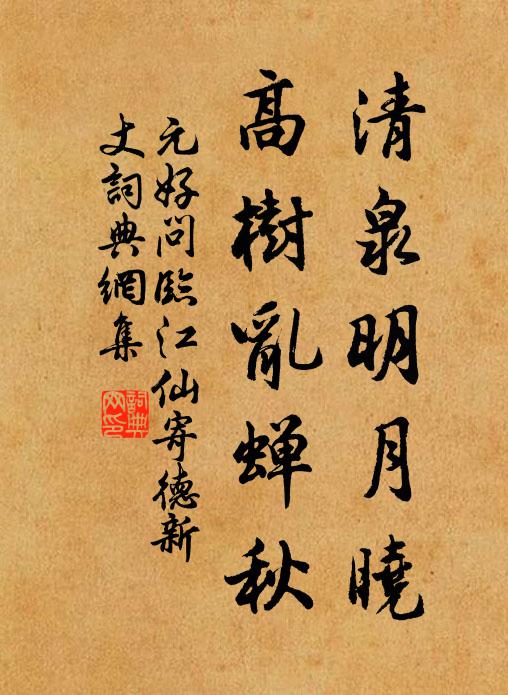 清泉明月曉
高樹亂蟬秋
元好問臨江仙寄德新
丈詞典網集
詞典网印